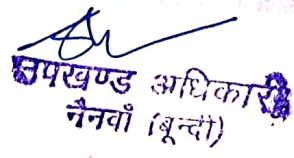 उपखण्ड अधिकारी
नैनवाँ (बून्दी)